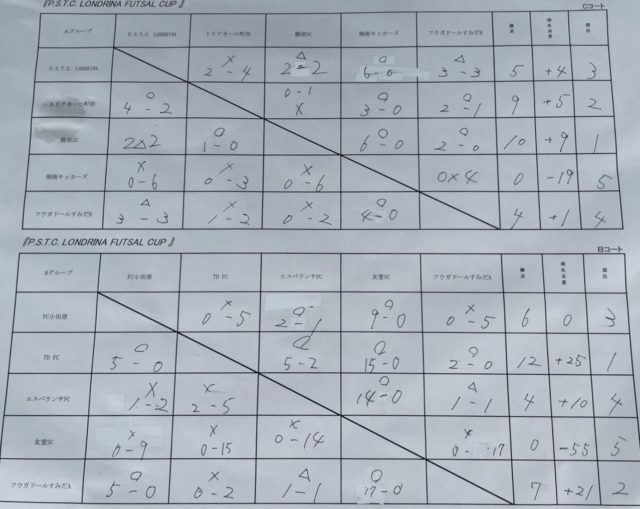 『P.S.T.C. LONDRINA FUTSAL CUP 』 Cコート
Aグループ P.S.T.C. LONDRINA トリアネーロ町田 勝原SC 湘南キッカーズ フウガドールすみだB 勝点 得失点差 順位
P.S.T.C. LONDRINA × 2-4 △ 2-2 ○ 6-0 △ 3-3 5 +4 3
トリアネーロ町田 ○ 4-2 0-1 × ○ 3-0 ○ 2-1 9 +5 2
勝原SC 2△2 ○ 1-0 ○ 6-0 ○ 2-0 10 +9 1
湘南キッカーズ × 0-6 × 0-3 × 0-6 0×4 0 -19 5
フウガドールすみだB △ 3-3 × 1-2 × 0-2 ○ 4-0 4 +1 4
『P.S.T.C. LONDRINA FUTSAL CUP 』 Bコート
Bグループ FC小田原 TD FC エスペランサFC 友愛SC フウガドールすみだA 勝点 得失点差 順位
FC小田原 × 0-5 ○ 2-1 ○ 9-0 × 0-5 6 0 3
TD FC ○ 5-0 ○ 5-2 ○ 15-0 ○ 2-0 12 +25 1
エスペランサFC × 1-2 × 2-5 ○ 14-0 △ 1-1 4 +10 4
友愛SC × 0-9 × 0-15 × 0-14 × 0-17 0 -55 5
フウガドールすみだA ○ 5-0 × 0-2 △ 1-1 ○ 17-0 7 +21 2